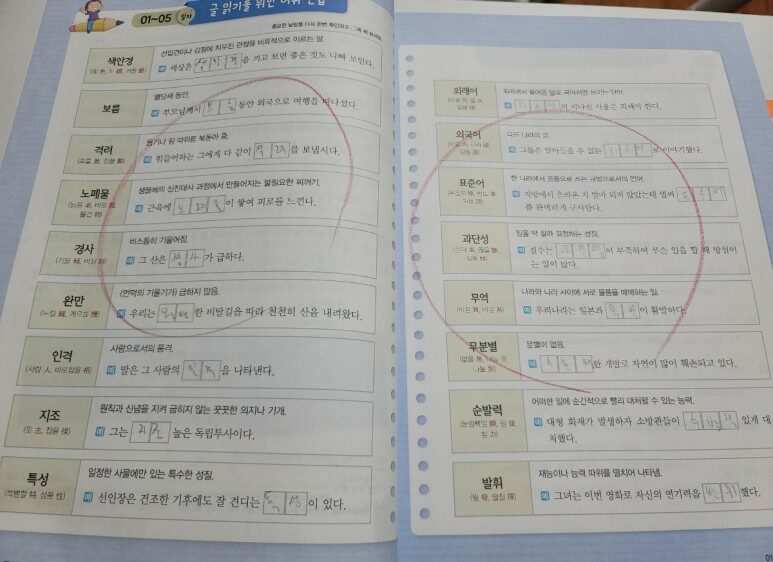 01~05 일차
글 읽기를 위한 어휘 연습
색안경
선입견이나 감정에 치우친 관점을 비유적으로 이르는 말.
예 세상은 색안경을 끼고 보면 좋은 것도 나빠 보인다.
보름
열닷새 동안.
예 부모님께서 보름 동안 외국으로 여행을 떠나셨다.
격려
용기나 힘 따위를 북돋아 줌.
예 힘들어하는 그에게 다 같이 격려를 보냅시다.
노폐물
생물체의 신진대사 과정에서 만들어지는 불필요한 찌꺼기.
예 근육에 노폐물이 쌓여 피로를 느낀다.
경사
비스듬히 기울어짐.
예 그 산은 경사가 급하다.
완만
(언덕의 기울기가) 급하지 않음.
예 우리는 완만한 비탈길을 따라 천천히 산을 내려왔다.
인격
(사람 人, 바로잡을 格)
사람으로서의 품격.
예 말은 그 사람의 인격을 나타낸다.
지조
(뜻 志, 잡을 操)
원칙과 신념을 지켜 굽히지 않는 꿋꿋한 의지나 기개.
예 그는 지조 높은 독립투사이다.
특성
(특별할 特, 성품 性)
일정한 사물에만 있는 특수한 성질.
예 선인장은 건조한 기후에도 잘 견디는 특성이 있다.
외래어
외국에서 들어온 말로 국어처럼 쓰이는 단어.
예 외래어의 지나친 사용은 피해야 한다.
외국어
다른 나라의 말.
예 그들은 알아들을 수 없는 외국어로 이야기했다.
표준어
한 나라에서 공용으로 쓰는 규범으로서의 언어.
예 지방에서 올라온 지 얼마 되지 않았는데 벌써 표준어
를 완벽하게 구사한다.
과단성
일을 딱 잘라 결정하는 성질.
예 철수는 과단성이 부족하여 무슨 일을 할 때 망설이
는 일이 많다.
무역
나라와 나라 사이에 서로 물품을 매매하는 일.
예 우리나라는 일본과 무역이 활발하다.
무분별
분별이 없음.
예 무분별한 개발로 자연이 많이 훼손되고 있다.
순발력
어떠한 일에 순간적으로 빨리 대처할 수 있는 능력.
예 대형 화재가 발생하자 소방관들이 순발력 있게 대
처했다.
발휘
(필 發, 떨칠 揮)
재능이나 능력 따위를 떨치어 나타냄.
예 그녀는 이번 영화로 자신의 연기력을 발휘했다.
01